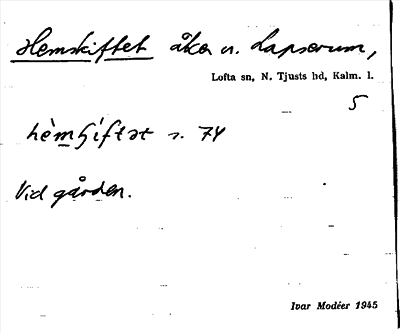 Hemskiftet åker u. Lapserum,
Lofta sn, N. Tjusts hd, Kalm. l.
5
hèmʃíftət s. 74
Vid gården.
Ivar Modéer 1945